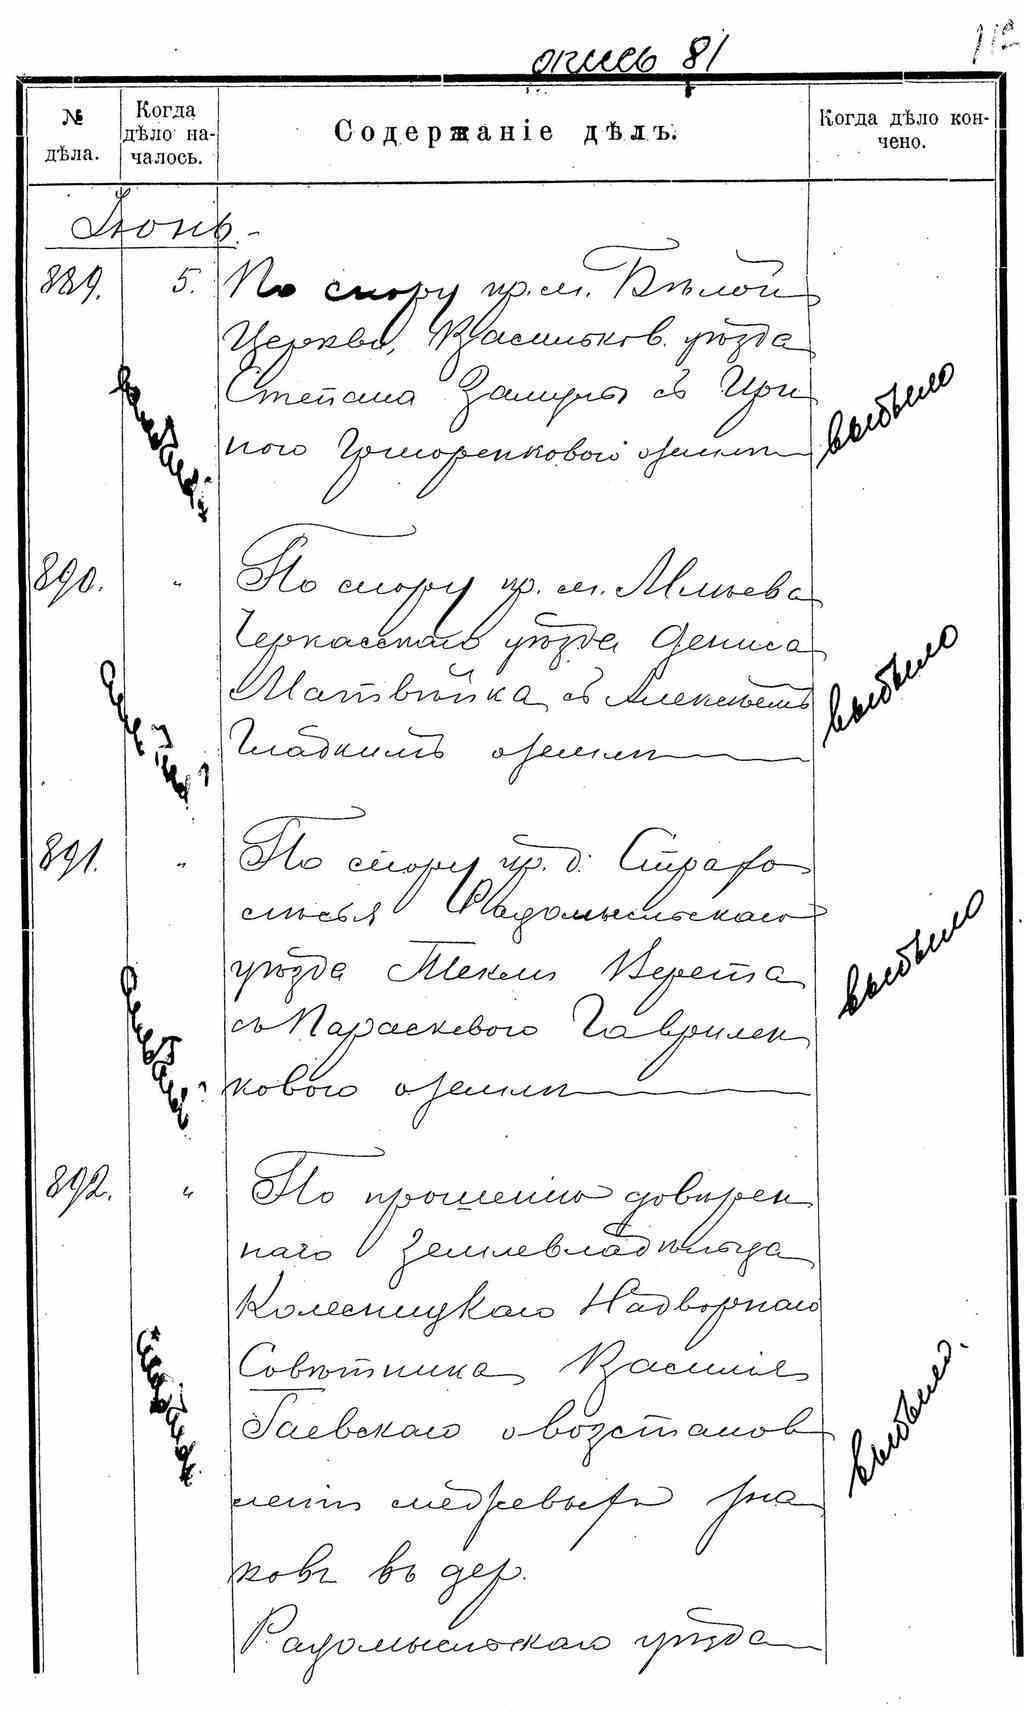 опись 81
112
№ дѣла.
Когда дѣло на-
чалось.
Содержаніе дѣлъ.
Когда дѣло кон-
чено.
Іюнь.
889. 5. По спору кр. м. Бѣлой
Церкви, Васильков. уѣзда
Степана съ
ного о землѣ
выбыло
890. " По спору кр. м. Мліева
Черкасскаго уѣзда Дениса
Матвѣйка съ Алексѣемъ
Гладкимъ о землѣ
выбыло
891. " По спору кр. д. Страхо
лѣсья Радомысльскаго
уѣзда Текли Верета
съ Параскевою Гаврилен
ковою о землѣ
выбыло
892. " По прошенію довѣрен
наго Землевладѣльца
Колесницкаго Надворнаго
Совѣтника Василія
Гаевскаго о возстанов
леніи межевыхъ зна
ковъ въ дер.
Радомысльскаго уѣзда
выбыло.